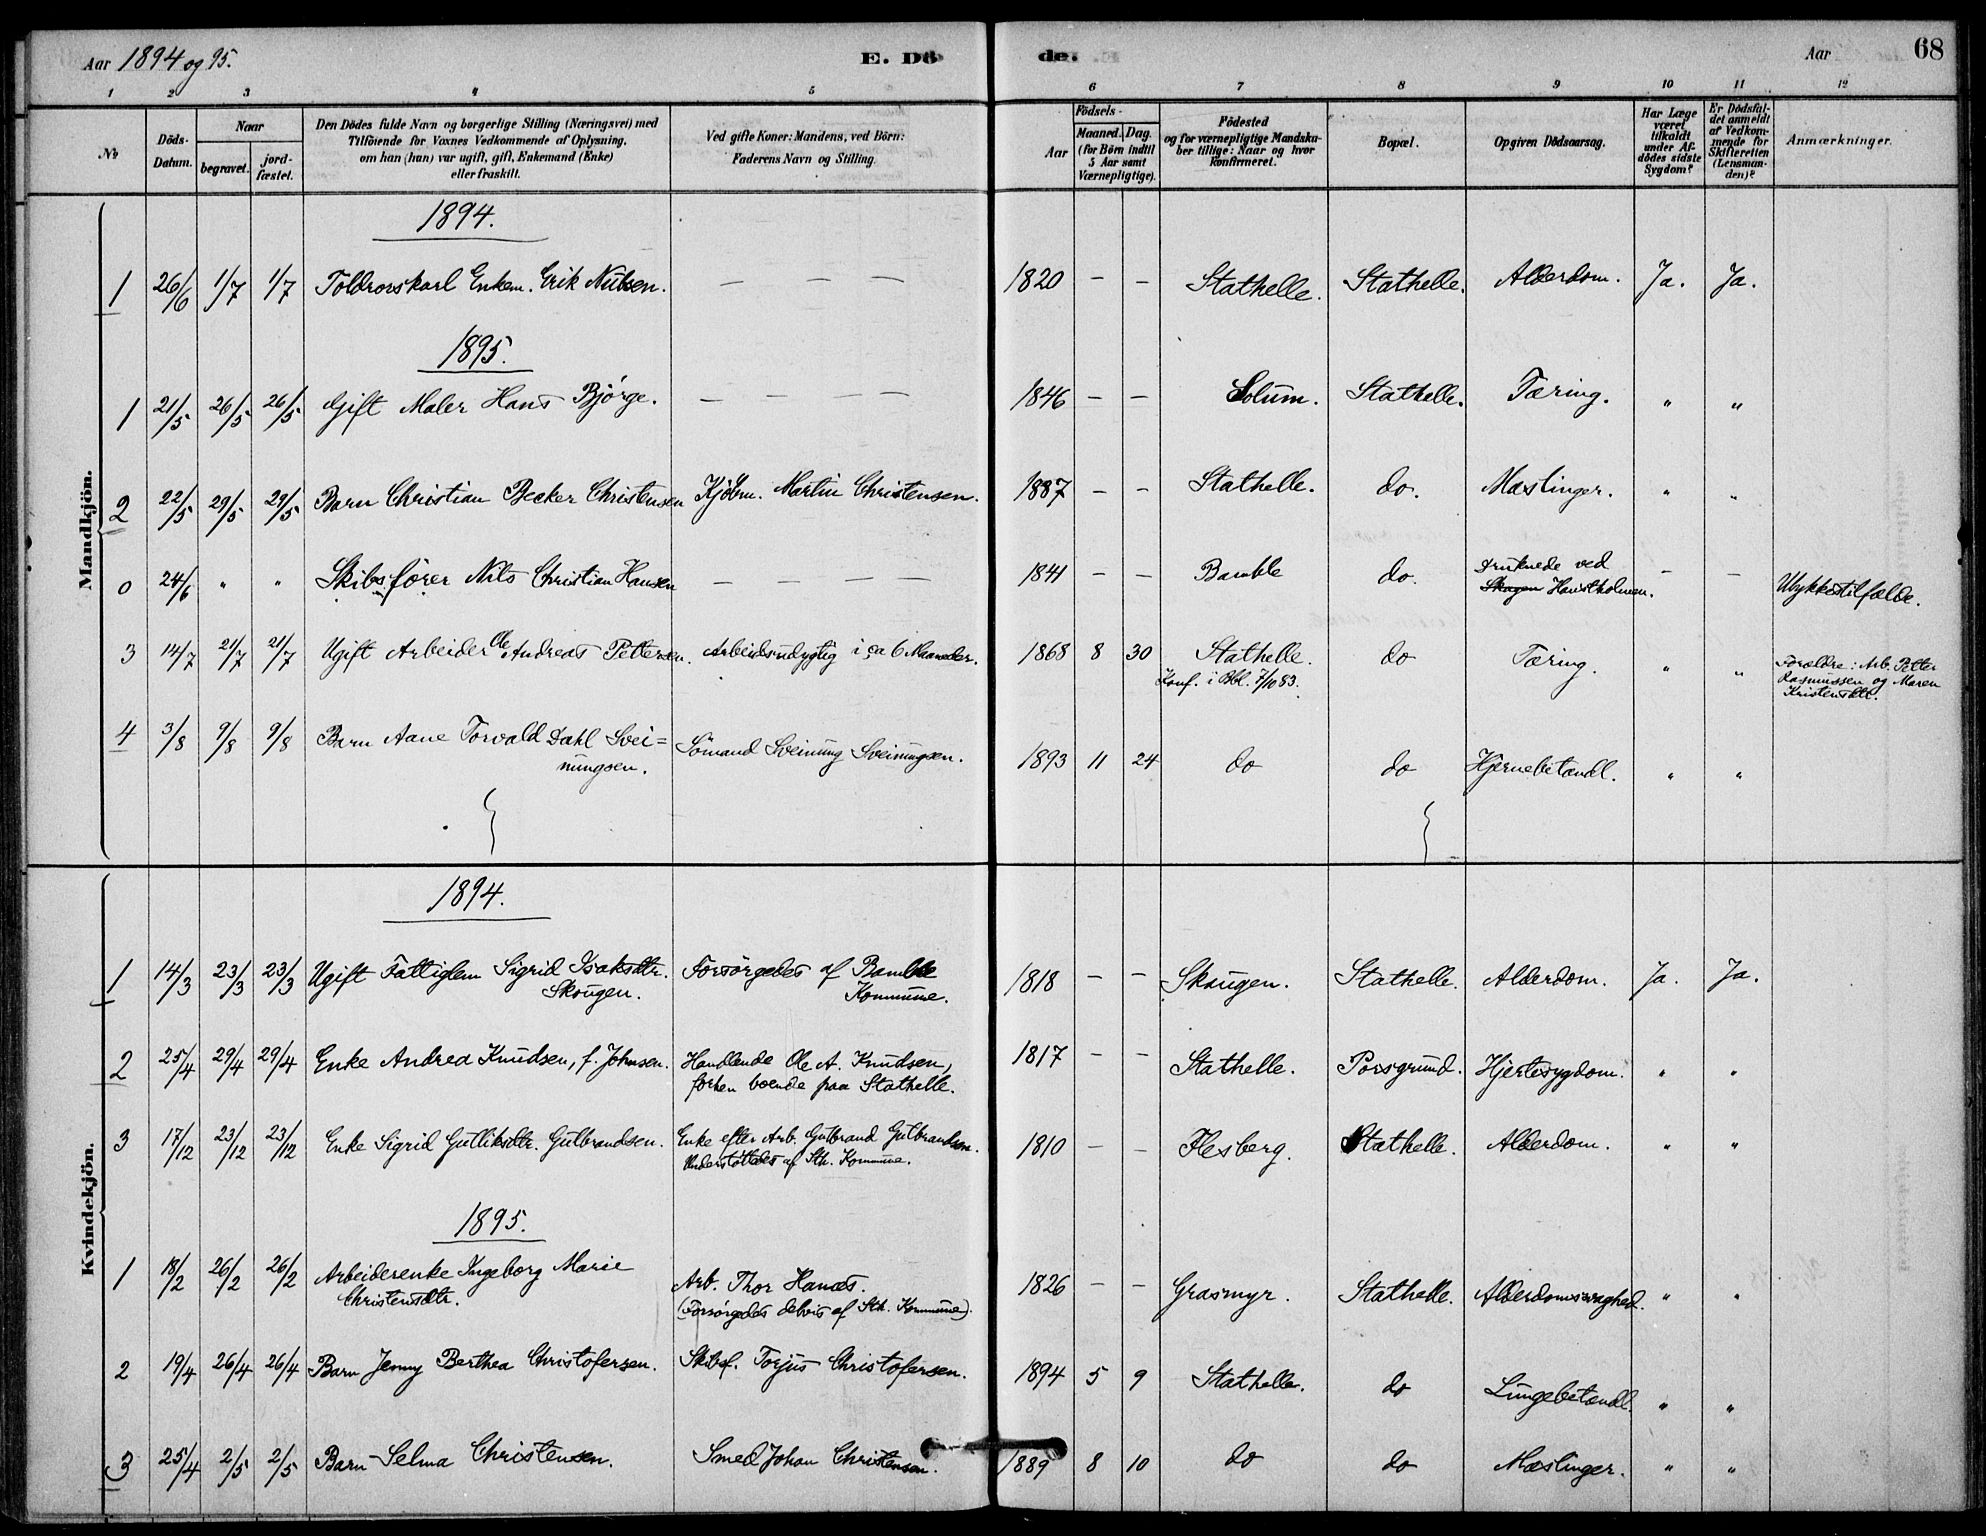 Aar 1894 og 95.
E. Dö
de.
Aar
68
1 2 3 4 5 6 7 8 9 10 11 12
No
Döds-
Datum.
Naar
begravet.
jord-
fæstet.
Den Dödes fulde Navn og borgerlige Stilling (Næringsvei) med
Tilföiende for Voxnes Vedkommende af Oplysning,
om han (hun) var ugift, gift, Enkemand (Enke)
eller fraskilt.
Ved gifte Koner: Mandens, ved Börn:
Faderens Navn og Stilling.
Födsels-
Aar
Maaned. Dag.
(for Börn indtil
5 Aar samt
Værnepligtige).
Födested
og for værnepligtige Mandska-
ber tillige: Naar og hvor
konfirmeret.
Bopæl.
Opgiven Dödsaarsag.
Har Læge
været
tilkaldt
under Af-
dödes sidste
Sygdom?
Er Dödsfal-
det anmeldt
af Vedkom-
mende for
Skifteretten
(Lensman-
den)?
Anmærkninger.
Mandkjön.
1894.
1 26/6 1/7 1/7 Toldrorskarl Enkem. Erik Nilsen. — — — — 1820 — — Stathelle. Stathelle. Alderdom. Ja. Ja.
1895.
1 21/5 26/5 26/5 Gift Maler Hans Bjørge. — — — — 1846 — — Solum. Stathelle. Tæring. " "
2 22/5 29/5 29/5 Barn Christian Becker Christensen Kjöbm. Martin Christensen. 1887 — — Stathelle. do. Mæslinger. " "
0 24/6 " " Skibsfører Nils Christian Hansen — — — — 1841 — — Bamble do. druknede ved — —
Skagen Hanstholmen. Ulykkestilfælde.
3 14/7 21/7 21/7 Ugift Arbeider Ole Andreas Pettersen. Arbeidsudygtig i ca 6 Maaneder. 1868 8 30 Stathelle. do Tæring. " " Forældre: Arb. Petter
Konf. i Bbl. 7/10 83. Rasmussen og Maren
Kristensdtr.
4 3/8 9/8 9/8 Barn Aane Torvald Dahl Svei=
nungsen. Sömand Sveinung Sveinungsen. 1893 11 24 do do Hjernebetændl. " "
Kvindekjön.
1894.
1 14/3 23/3 23/3 Ugift Fattiglem Sigrid Isaksdtr. Forsörgedes af Bamble
Skougen. Kommune. 1818 — — Skougen. Stathelle. Alderdom. Ja. Ja.
2 25/4 29/4 29/4 Enke Andrea Knudsen, f. Johnsen. Handlende Ole A. Knudsen,
forhen boende paa Stathelle. 1817 — — Stathelle. Porsgrund. Hjertesygdom. " "
3 17/12 23/12 23/12 Enke Sigrid Gulliksdtr. Gulbrandsen. Enke efter Arb. Gulbrand Gulbrandsen.
Understöttedes af Sth. Kommune. 1810 — — Flesberg. Stathelle. Alderdom. " "
1895.
1 18/2 26/2 26/2 Arbeiderenke Ingeborg Marie
Christensdtr. Arb. Thor Hanæs.
(Forsörgedes delvis af Sth. Kommune). 1826 — — Grasmyr. Stathelle. Alderdomssvaghed. " "
2 19/4 26/4 26/4 Barn Jenny Berthea Christofersen. Skibsf. Torjus Christofersen. 1894 5 9 Stathelle. do Lungebetændl. " "
3 25/4 2/5 2/5 Barn Selma Christensen. Smed Johan Christensen. 1889 8 10 do do Mæslinger. " "